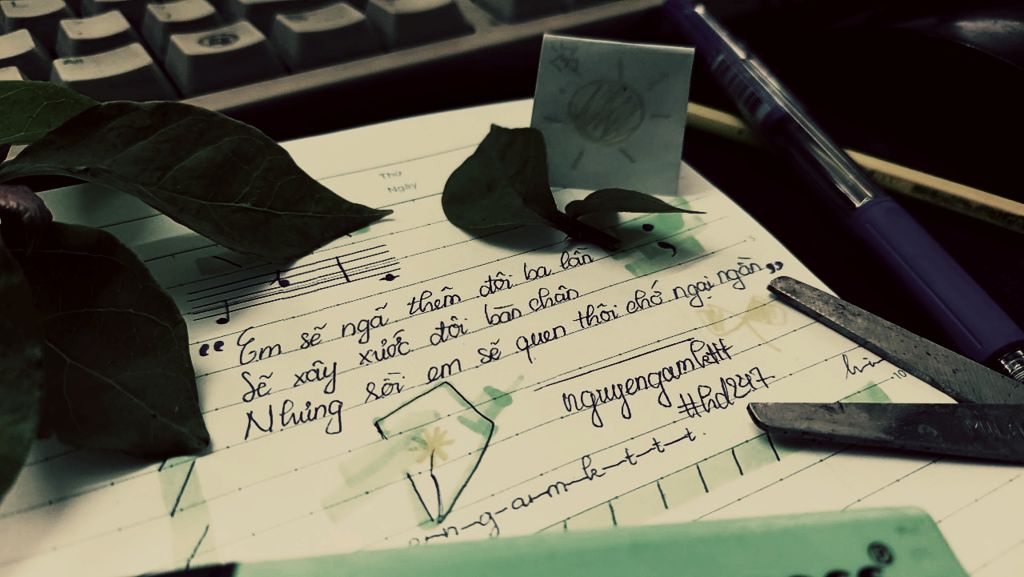 Thứ
Ngày
“ Em sẽ ngã thêm đôi ba lần
Sẽ xây xước đôi bàn chân
Nhưng rồi em sẽ quen thôi chớ ngại ngần ”
nguyengamkttt
#hd247
n-g-a-m-k-t-t-t.